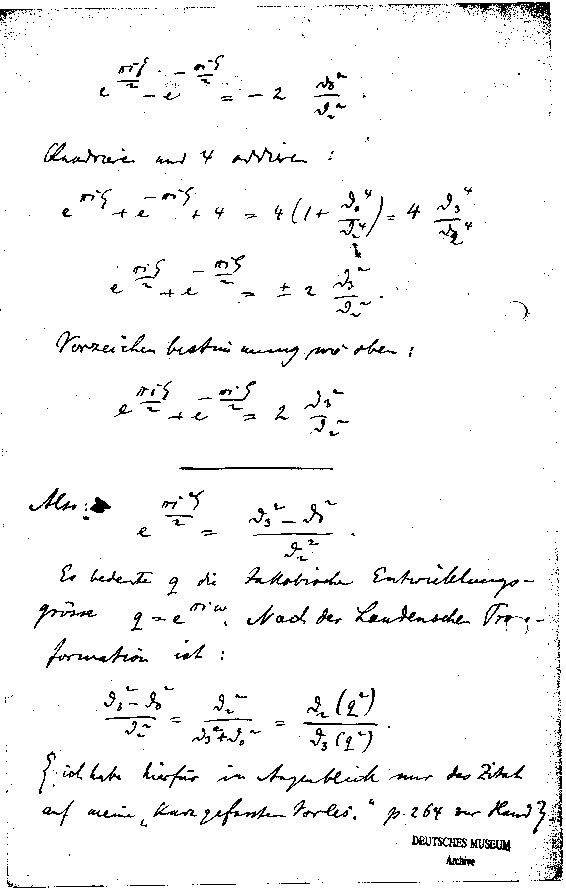 e^{πiζ/2} - e^{-πiζ/2} = -2 ϑ_0^2/ϑ_2^2.
Quadrieren und 4 addiren:
e^{πiζ} + e^{-πiζ} + 4 = 4(1 + ϑ_0^4/ϑ_2^4) = 4 ϑ_3^4/ϑ_2^4
e^{πiζ/2} + e^{-πiζ/2} = ± 2 ϑ_3^2/ϑ_2^2.
Vorzeichenbestimmung wie oben:
e^{πiζ/2} + e^{-πiζ/2} = 2 ϑ_3^2/ϑ_2^2
Also: e^{πiζ/2} = (ϑ_3^2 - ϑ_0^2)/ϑ_2^2.
Es bedeute q die Jakobische Entwicklungs-
grösse q = e^{πiω}. Nach der Landenschen Trans-
formation ist:
(ϑ_3^2 - ϑ_0^2)/ϑ_2^2 = ϑ_2^2/(ϑ_3^2 + ϑ_0^2) = ϑ_2(q^2)/ϑ_3(q^2).
{ich habe hierfür im Augenblick nur das Zitat
auf meine „Kurzgefassten Vorles." p. 264 zur Hand}.
DEUTSCHES MUSEUM
Archive